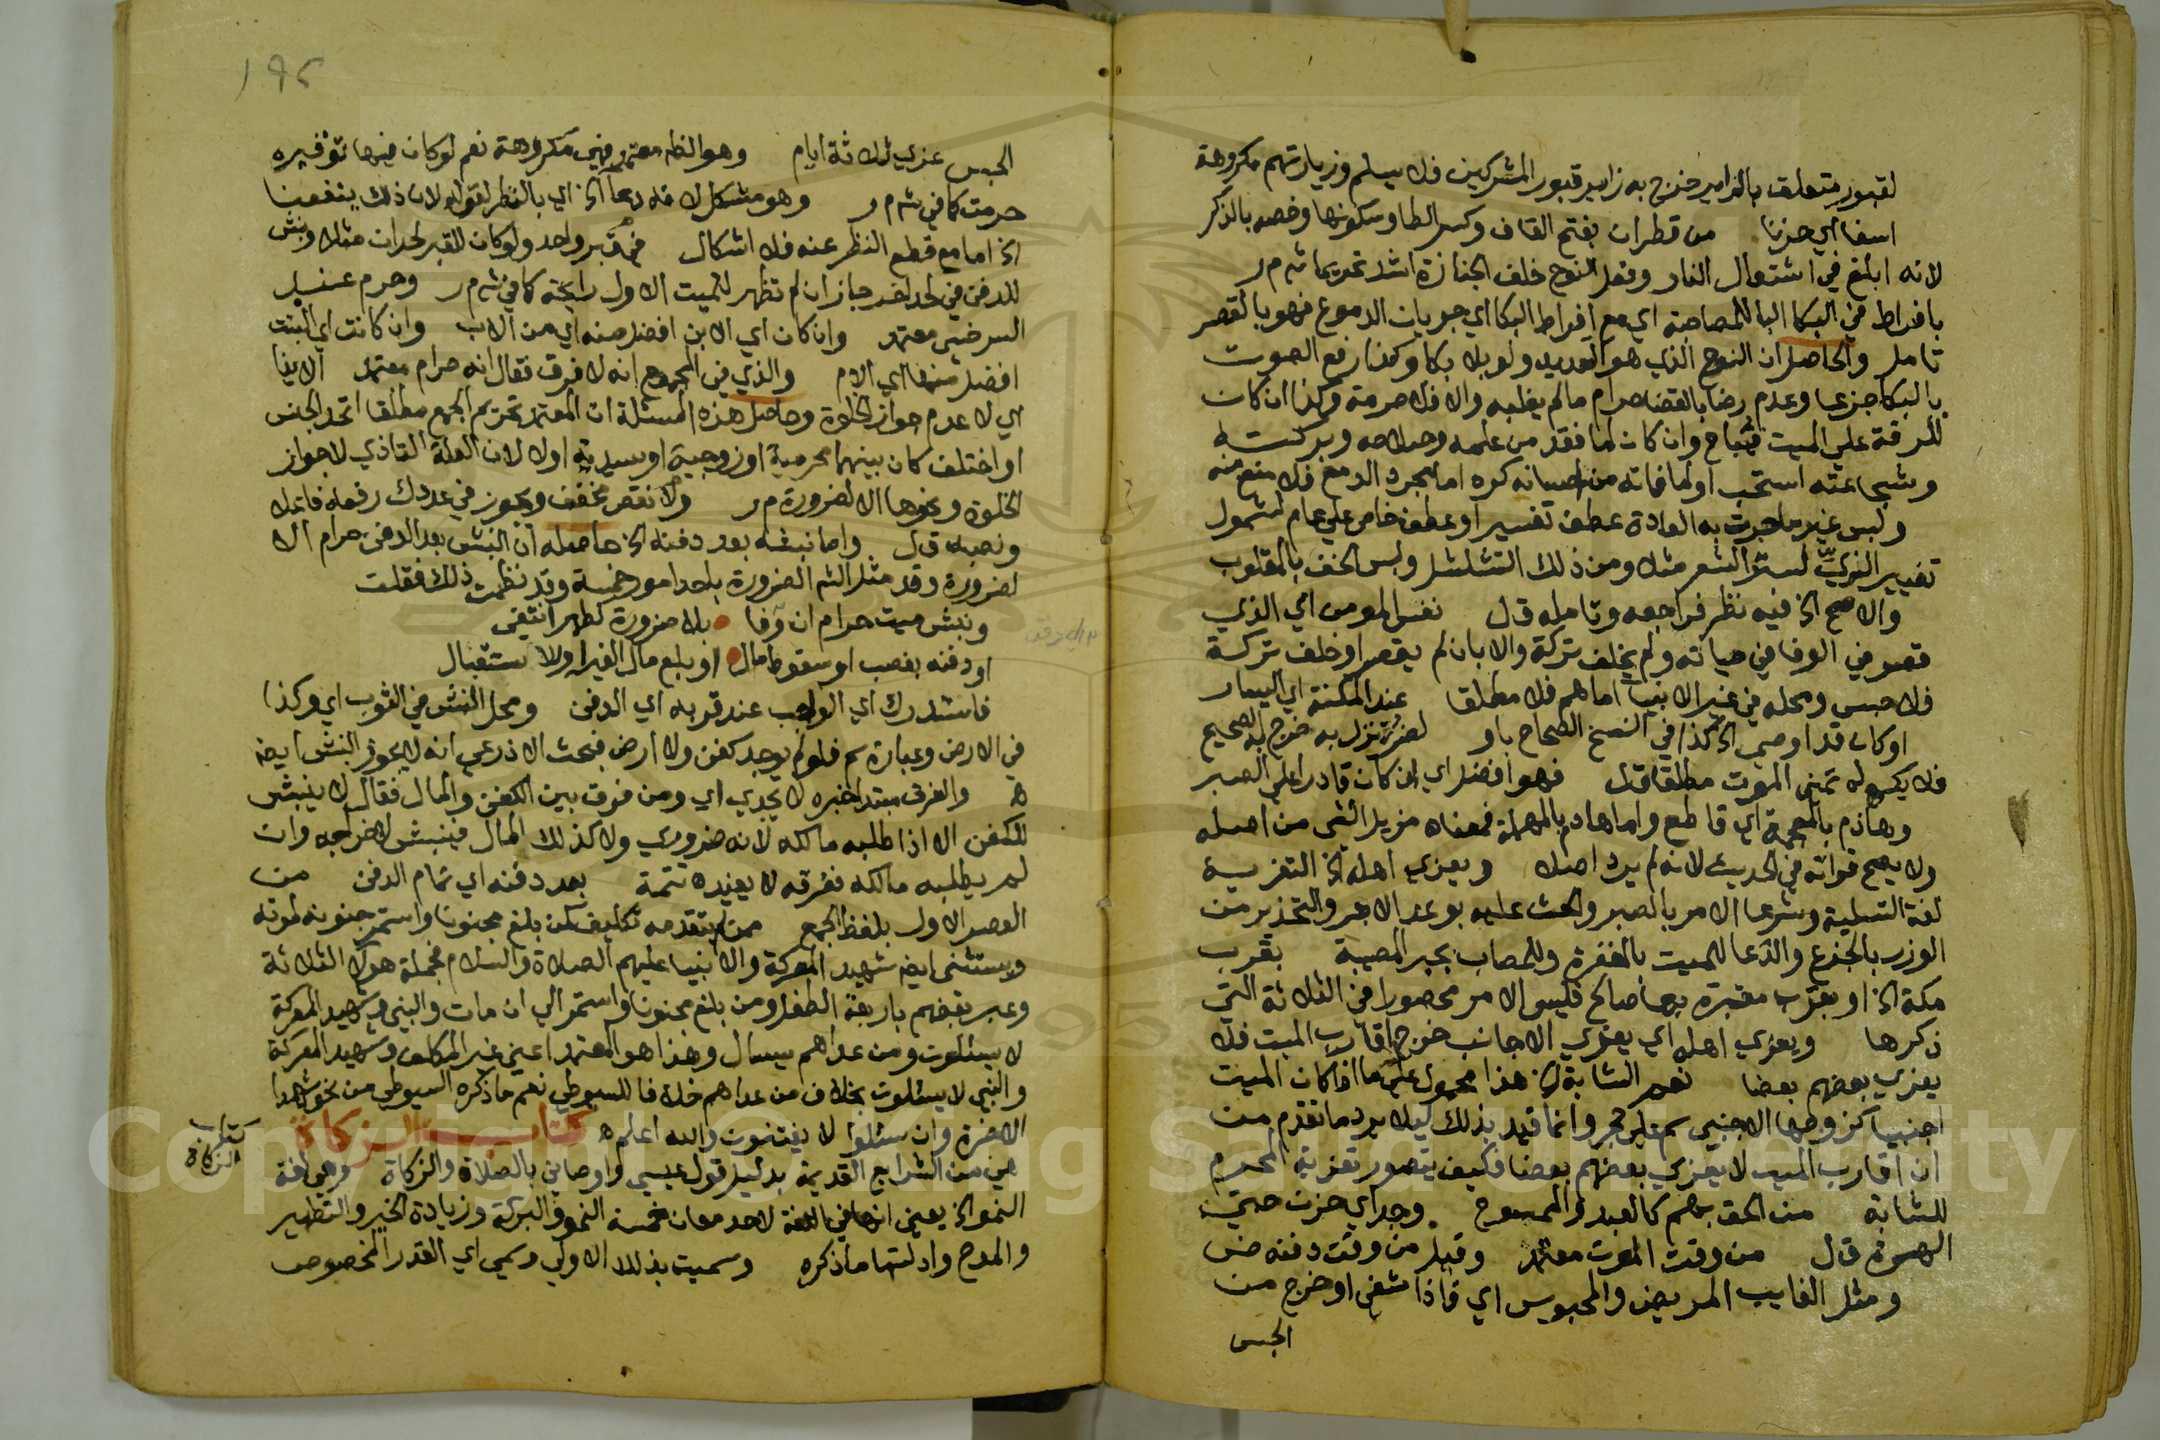 لقبور متعلق بالزاير خرج به زاير قبور المشركين فلا يسلم وزيارتهم مكروهة
اسفا اي حزنا من قطران بفتح القاف وكسر الطا وسكونها وخصه بالذكر
لانه ابلغ في اشتعال النار وفعل النوح خلف الجنازة اشد تحريما ش م ر
بافراط في البكا البا للمصاحبة اي مع افراط البكا اي جريان الدموع فهو بالقصر
تامل والحاصل ان النوح الذي هو التعديد ولو بلا بكا وكذا رفع الصوت
بالبكا جزعا وعدم رضا بالقضا حرام ما لم يغلبه والا فلا حرمة وكذا ان كان
للرقة على الميت فمباح وان كان لما فقد من علمه وصلاحه وبركته
وشجاعته استحب او لما فاته من احسانه كره اما لمجرد الدمع فلا منع منه
ولبس غير ما جرت به العادة عطف تفسير او عطف خاص على عام لشمول
تغيير الزي لستر الشعر مثلا ومن ذلك الشلشل ولبس الخف بالمقلوب
والاصح الخ فيه نظر فراجعه وتامله ق ل نفس المومن اي الذي
قصر في الوفا في حياته ولم يخلف تركة والا بان لم يقصر او خلف تركة
فلا حبس ومحله في غير الانبيا اما هم فلا مطلقا عند المكنة اي اليسار
او كان قد اوصى الخ كذا في النسخ الصحاح باو لضر نزل به خرج به الصحيح
فلا يكره له تمني الموت مطلقا ق ل فهو افضل اي ان كان قادرا على الصبر
وهاذم بالمعجمة اي قاطع واما هادم بالمهملة فمعناه مزيل الشي من اصله
ولا يصح قراته في الحديث لانه لم يرد اصلا ويعزى اهله الخ التعزية
لغة التسلية وشرعا الامر بالصبر والحث عليه بوعد الاجر والتحذير من
الوزر بالجزع والدعا للميت بالمغفرة وللمصاب بجبر المصيبة بقرب
مكة الخ او بقرب مقبرة بها صالح فليس الامر محصورا في الثلاثة التي
ذكرها ويعزي اهله اي يعزي الاجانب خرج اقارب الميت فلا
يعزي بعضهم بعضا نعم الشابة الخ هذا محمول على ما اذا كان الميت
اجنبيا كزوجها الاجنبي سم على حجر وانما قيد بذلك ليلا يرد ما تقدم من
ان اقارب الميت لا يعزي بعضهم بعضا فكيف يتصور تعزية المحرم
للشابة من الحق بهم كالعبد والممسوح وجد اي حزن حتى
الهرة ق ل من وقت الموت معتمد وقيل من وقت دفنه ض
ومثل الغايب المريض والمحبوس اي فاذا شفي او خرج من
الحبس
١٩٥
الحبس عزي ثلاثة ايام وهو الظاهر معتمد فهي مكروهة نعم لو كان فيها توقيره
حرمت كما في ش م ر وهو مشكل لانه دعا الخ اي بالنظر لقوله لان ذلك ينفعنا
الخ اما مع قطع النظر عنه فلا اشكال في قبر واحد ولو كان للقبر لحدان مثلا ونبش
للدفن في لحد اخر جاز ان لم تظهر للميت الاول رايحة كما في ش م ر وحرم عند
السرخسي معتمد وان كان اي الابن افضل منه اي من الاب وان كانت اي البنت
افضل منها اي الام والذي في المجموع انه لا فرق فقال انه حرام معتمد الا بنا
اي لا عدم جواز الخلوة وحاصل هذه المسئلة ان المعتمد تحريم الجمع مطلقا اتحد الجنس
او اختلف كان بينهما محرمية او زوجية او سيدية اولا لان العلة التاذي لا جواز
الخلوة ونحوها الا لضرورة م ر ولا نقص مخفف ويجوز في عددك رفعه فاعلا
ونصبه ق ل واما نبشه بعد دفنه الخ حاصله ان النبش بعد الدفن حرام الا
لضرورة وقد مثل الشم الضرورة باحد امور خمسة وقد نظمت ذلك فقلت
ونبش ميت حرام ان وفا بلا ضرورة كطهر انتفى
او دفنه بغصب او سقوط مال او بلع مال الغير او للاستقبال
فاستدرك اي الواجب عند قربه اي الدفن ومحل النبش في الثوب اي وكذا
في الارض وعبارة سم فلو لم يوجد كفن ولا ارض فبحث الاذرعي انه لا يجوز النبش ايضا
ه والفرق مبتدا خبره لا يجدي اي ومن فرق بين الكفن والمال فقال لا ينبش
للكفن الا اذا طلبه مالكه لانه ضروري ولا كذلك المال فينبش لاخراجه وان
لم يطلبه مالكه ففرقه لا يفيده تتمة بعد دفنه اي تمام الدفن من
العصر الاول بلفظ الجمع ممن لم يتقدمه تكليف كمن بلغ مجنونا واستمر جنونه لموته
ويستثنى ايضا شهيد المعركة والانبيا عليهم الصلاة والسلام فجملة هولا الثلاثة
وعبر بعضهم باربعة الطفل ومن بلغ مجنونا واستمر الى ان مات والنبي وشهيد المعركة
لا يسئلون ومن عداهم يسال وهذا هو المعتمد اعني غير المكلف وشهيد المعركة
والنبي لا يسئلون بخلاف من عداهم خلافا للسيوطي نعم ما ذكره السيوطي من نحو شهدا
الاخرة وان سئلوا لا يفتنون والله اعلم ه كتاب الزكاة
كتاب الزكاة
هي من الشرايع القديمة بدليل قول عيسى واوصاني بالصلاة والزكاة وهي لغة
النمو الخ يعني انها في اللغة لاحد معان خمسة النمو والبركة وزيادة الخير والتطهير
والمدح وادلتها ما ذكره وسميت بذلك الاولى وسمي اي القدر المخصوص